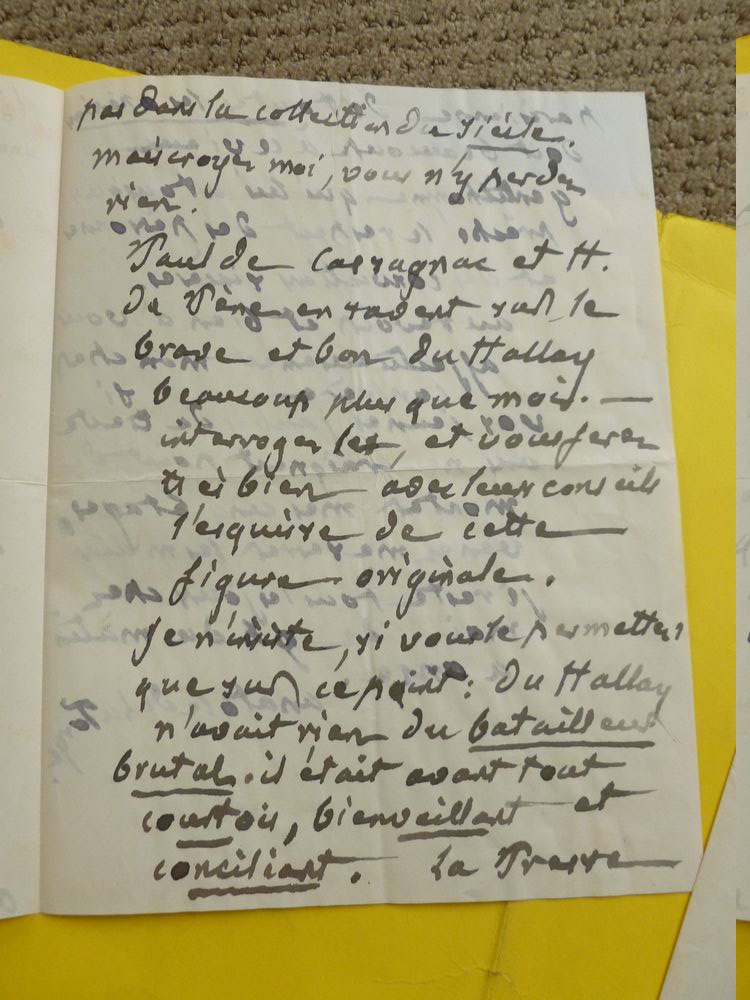 pas dans la collection du siècle.
mais croyez moi, vous n'y perdez
rien.
Paul de Cassagnac et H.
de Pène en savent sur le
brave et bon du Hallay
beaucoup plus que moi. —
interrogez les, et vous ferez
très bien avec leurs conseils
l'esquisse de cette
figure originale.
Je n'insiste, si vous le permettez,
que sur ce point : Du Hallay
n'avait rien du batailleur
brutal. il était avant tout
courtois, bienveillant et
conciliant. La Presse